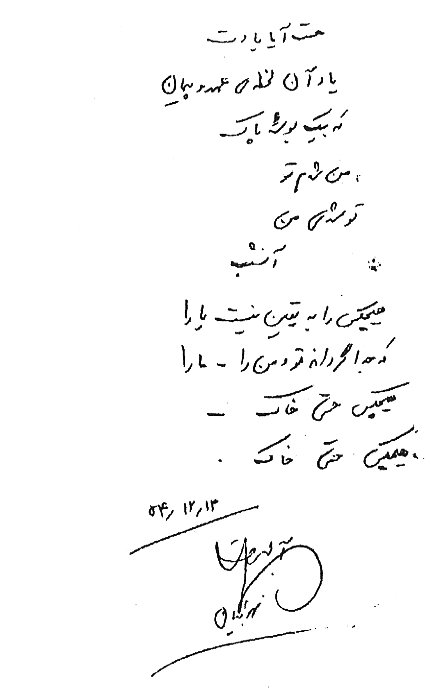 هست آیا یادت
یاد آن لحظه‌ی عهد و پیمان
که بیک بوسهٔ پاک
من شدم تو
تو شدی من
آنشب
هیچکس را به یقین نیست یارا
که جدا گرداند تو و من را - ما را
هیچکس حتی خاک -
هیچکس حتی خاک .
۵۴٫۱۲٫۱۳